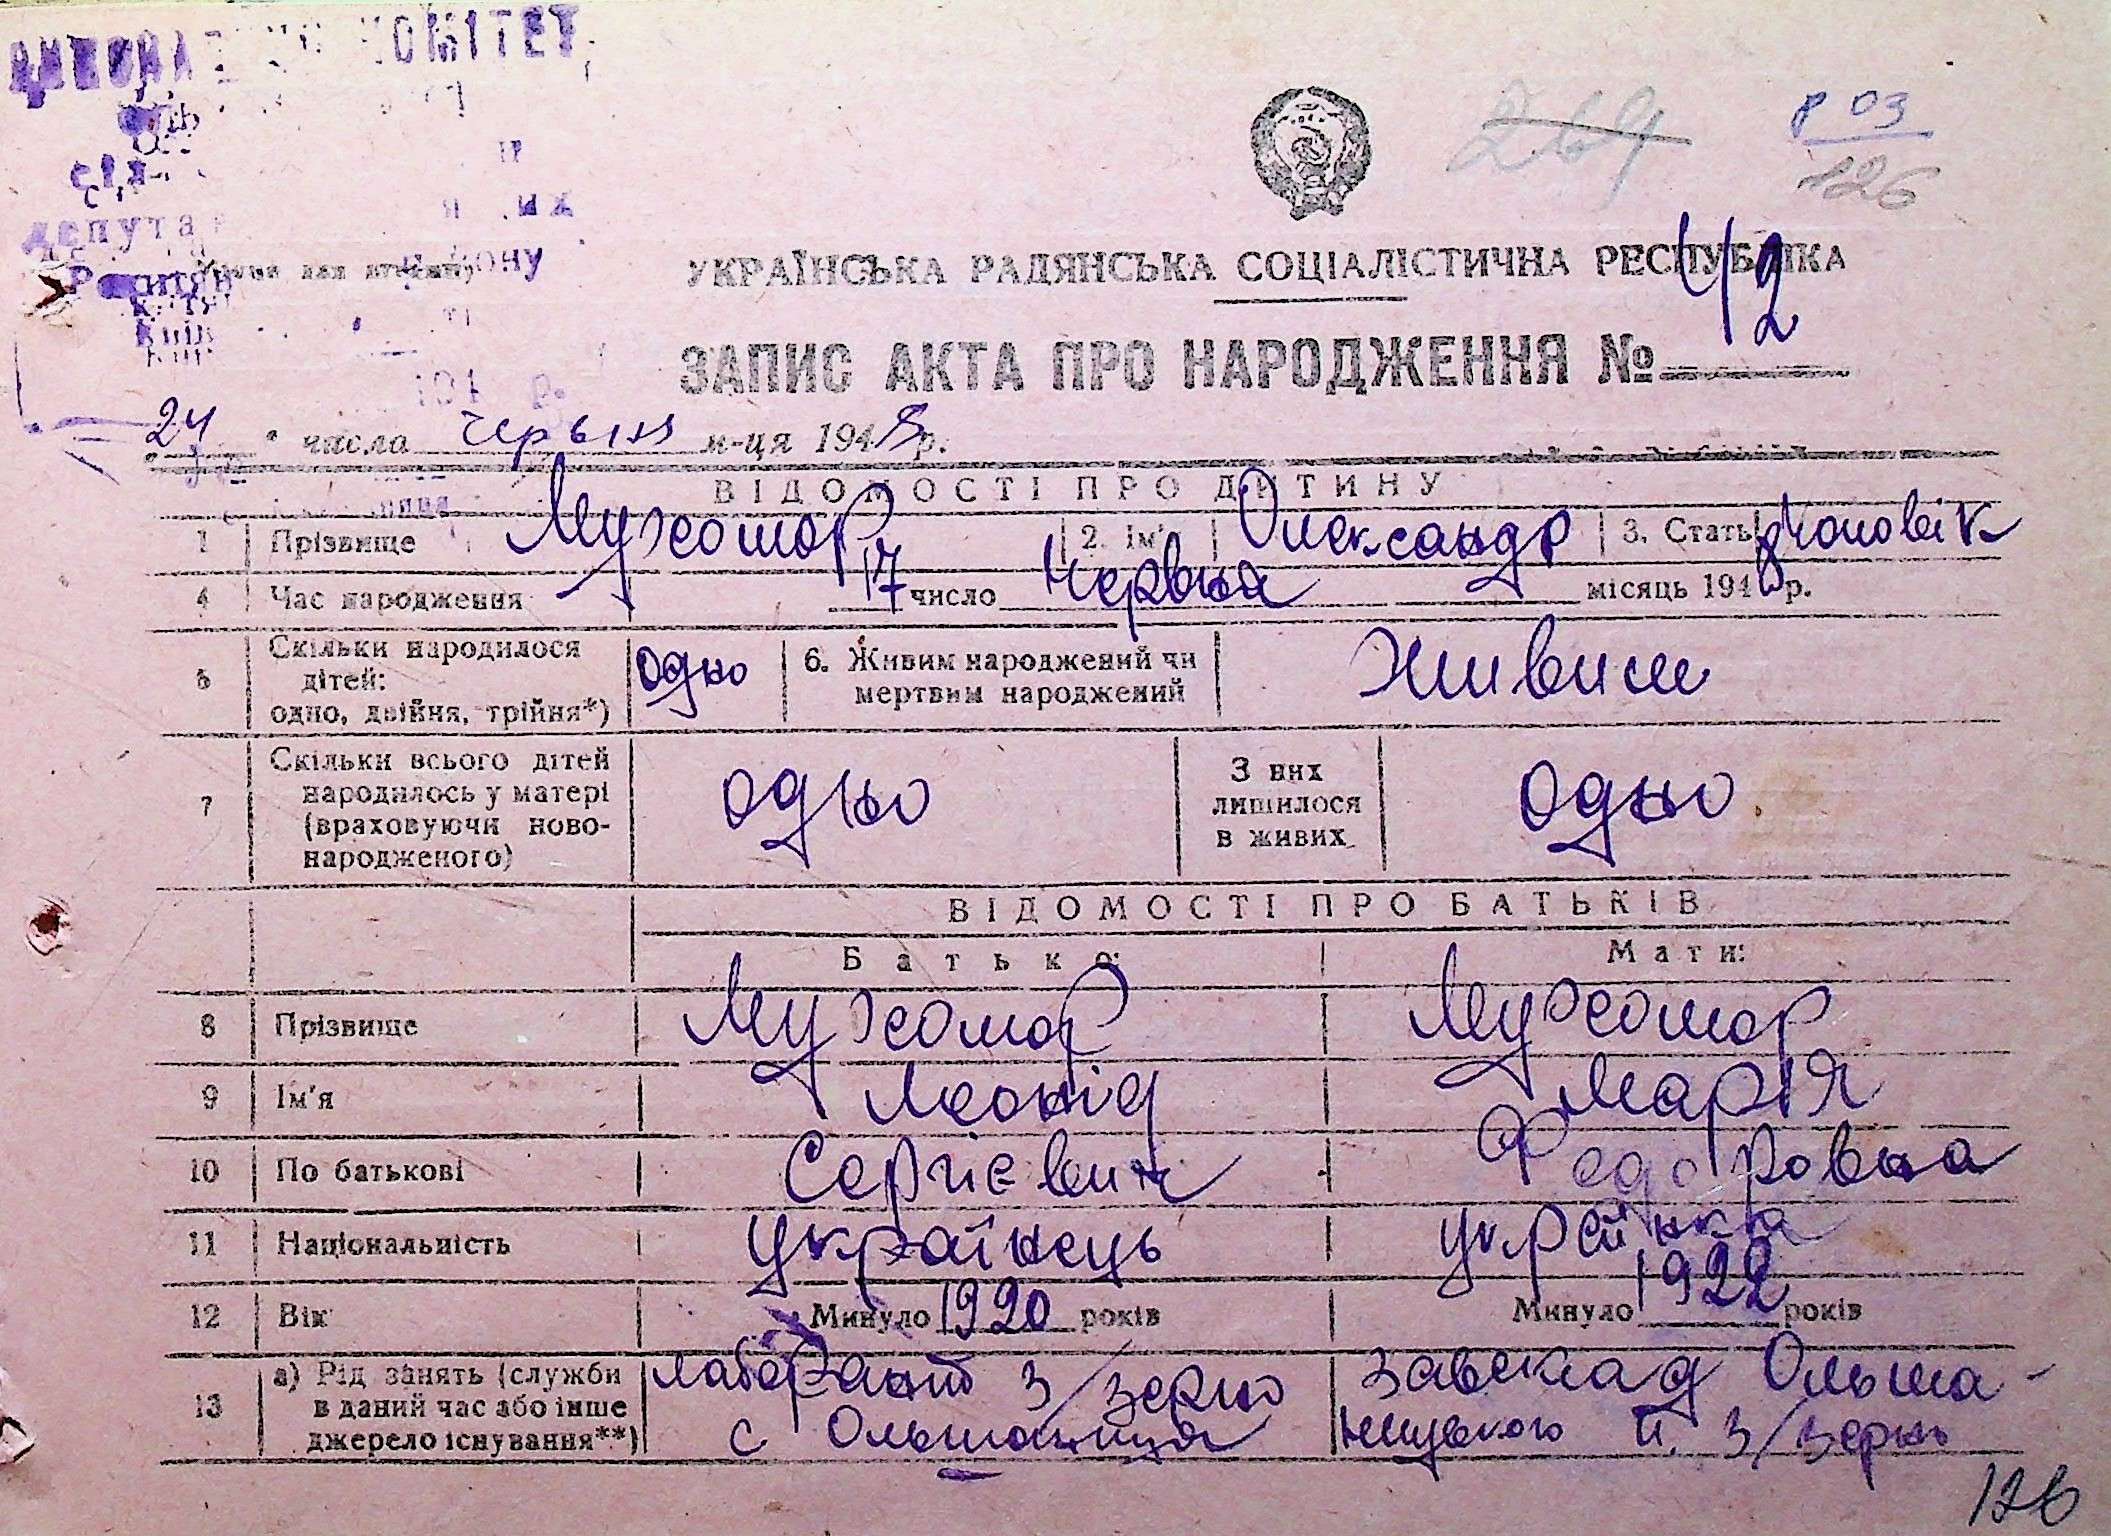 КОМІТЕТ
депута
269
р 03
126
УКРАЇНСЬКА РАДЯНСЬКА СОЦІАЛІСТИЧНА РЕСПУБЛІКА
ЗАПИС АКТА ПРО НАРОДЖЕННЯ № 42
24 числа червня м-ця 1948 р.
ВІДОМОСТІ ПРО ДИТИНУ
1 Прізвище Мухомор 2. Ім'я Олександр 3. Стать чоловік
4 Час народження 17 число Червня місяць 1948 р.
5 Скільки народилося дітей: одно, двійня, трійня*) одно 6. Живим народжений чи мертвим народжений живим
7 Скільки всього дітей народилось у матері (враховуючи новонародженого) одно З них лишилося в живих одно
ВІДОМОСТІ ПРО БАТЬКІВ
Батько: Мати:
8 Прізвище Мухомор Мухомор
9 Ім'я Леонід Марія
10 По батькові Сергієвич Федоровна
11 Національність українець українка
12 Вік Минуло 1920 років Минуло 1922 років
13 а) Рід занять (служби в даний час або інше джерело існування**) лаборант З/зерно завсклад Ольша-
с Ольшаниця ницького п. З/зерно
126